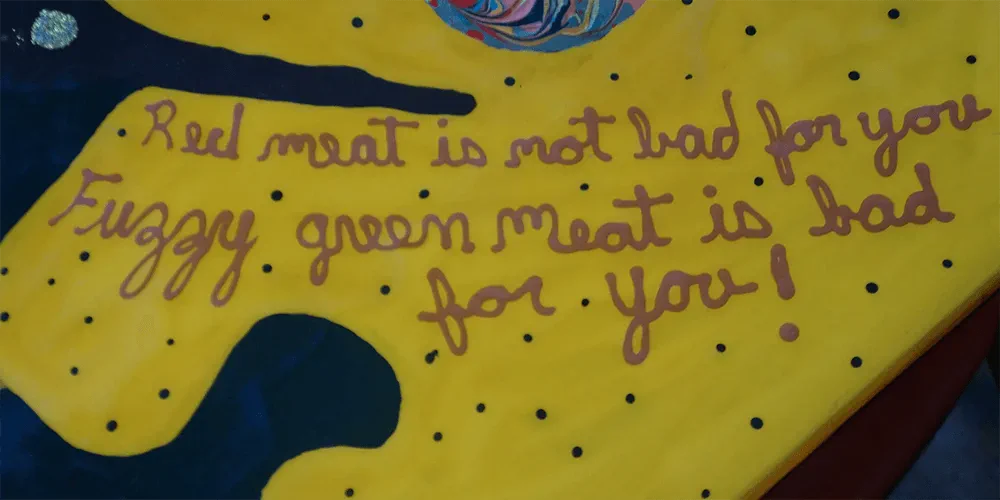 Red meat is not bad for you
Fuzzy green meat is bad
for you!